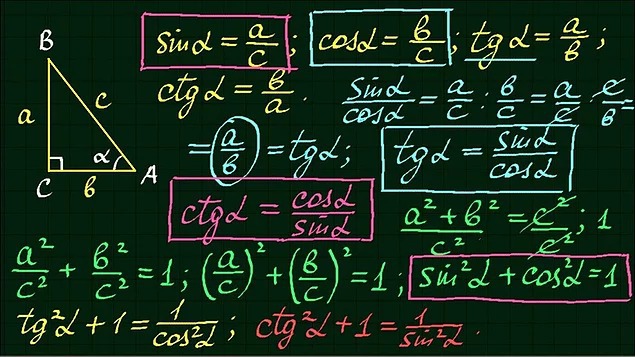 B
a
c
C
b
α
A
sinα = a/c ; cosα = b/c ; tgα = a/b ;
ctgα = b/a . sinα/cosα = a/c : b/c = a/c · c/b =
= a/b = tgα; tgα = sinα/cosα
ctgα = cosα/sinα
a² + b²/c² = c²/c² ; 1
a²/c² + b²/c² = 1 ; (a/c)² + (b/c)² = 1 ; sin²α + cos²α = 1
tg²α + 1 = 1/cos²α ; ctg²α + 1 = 1/sin²α .